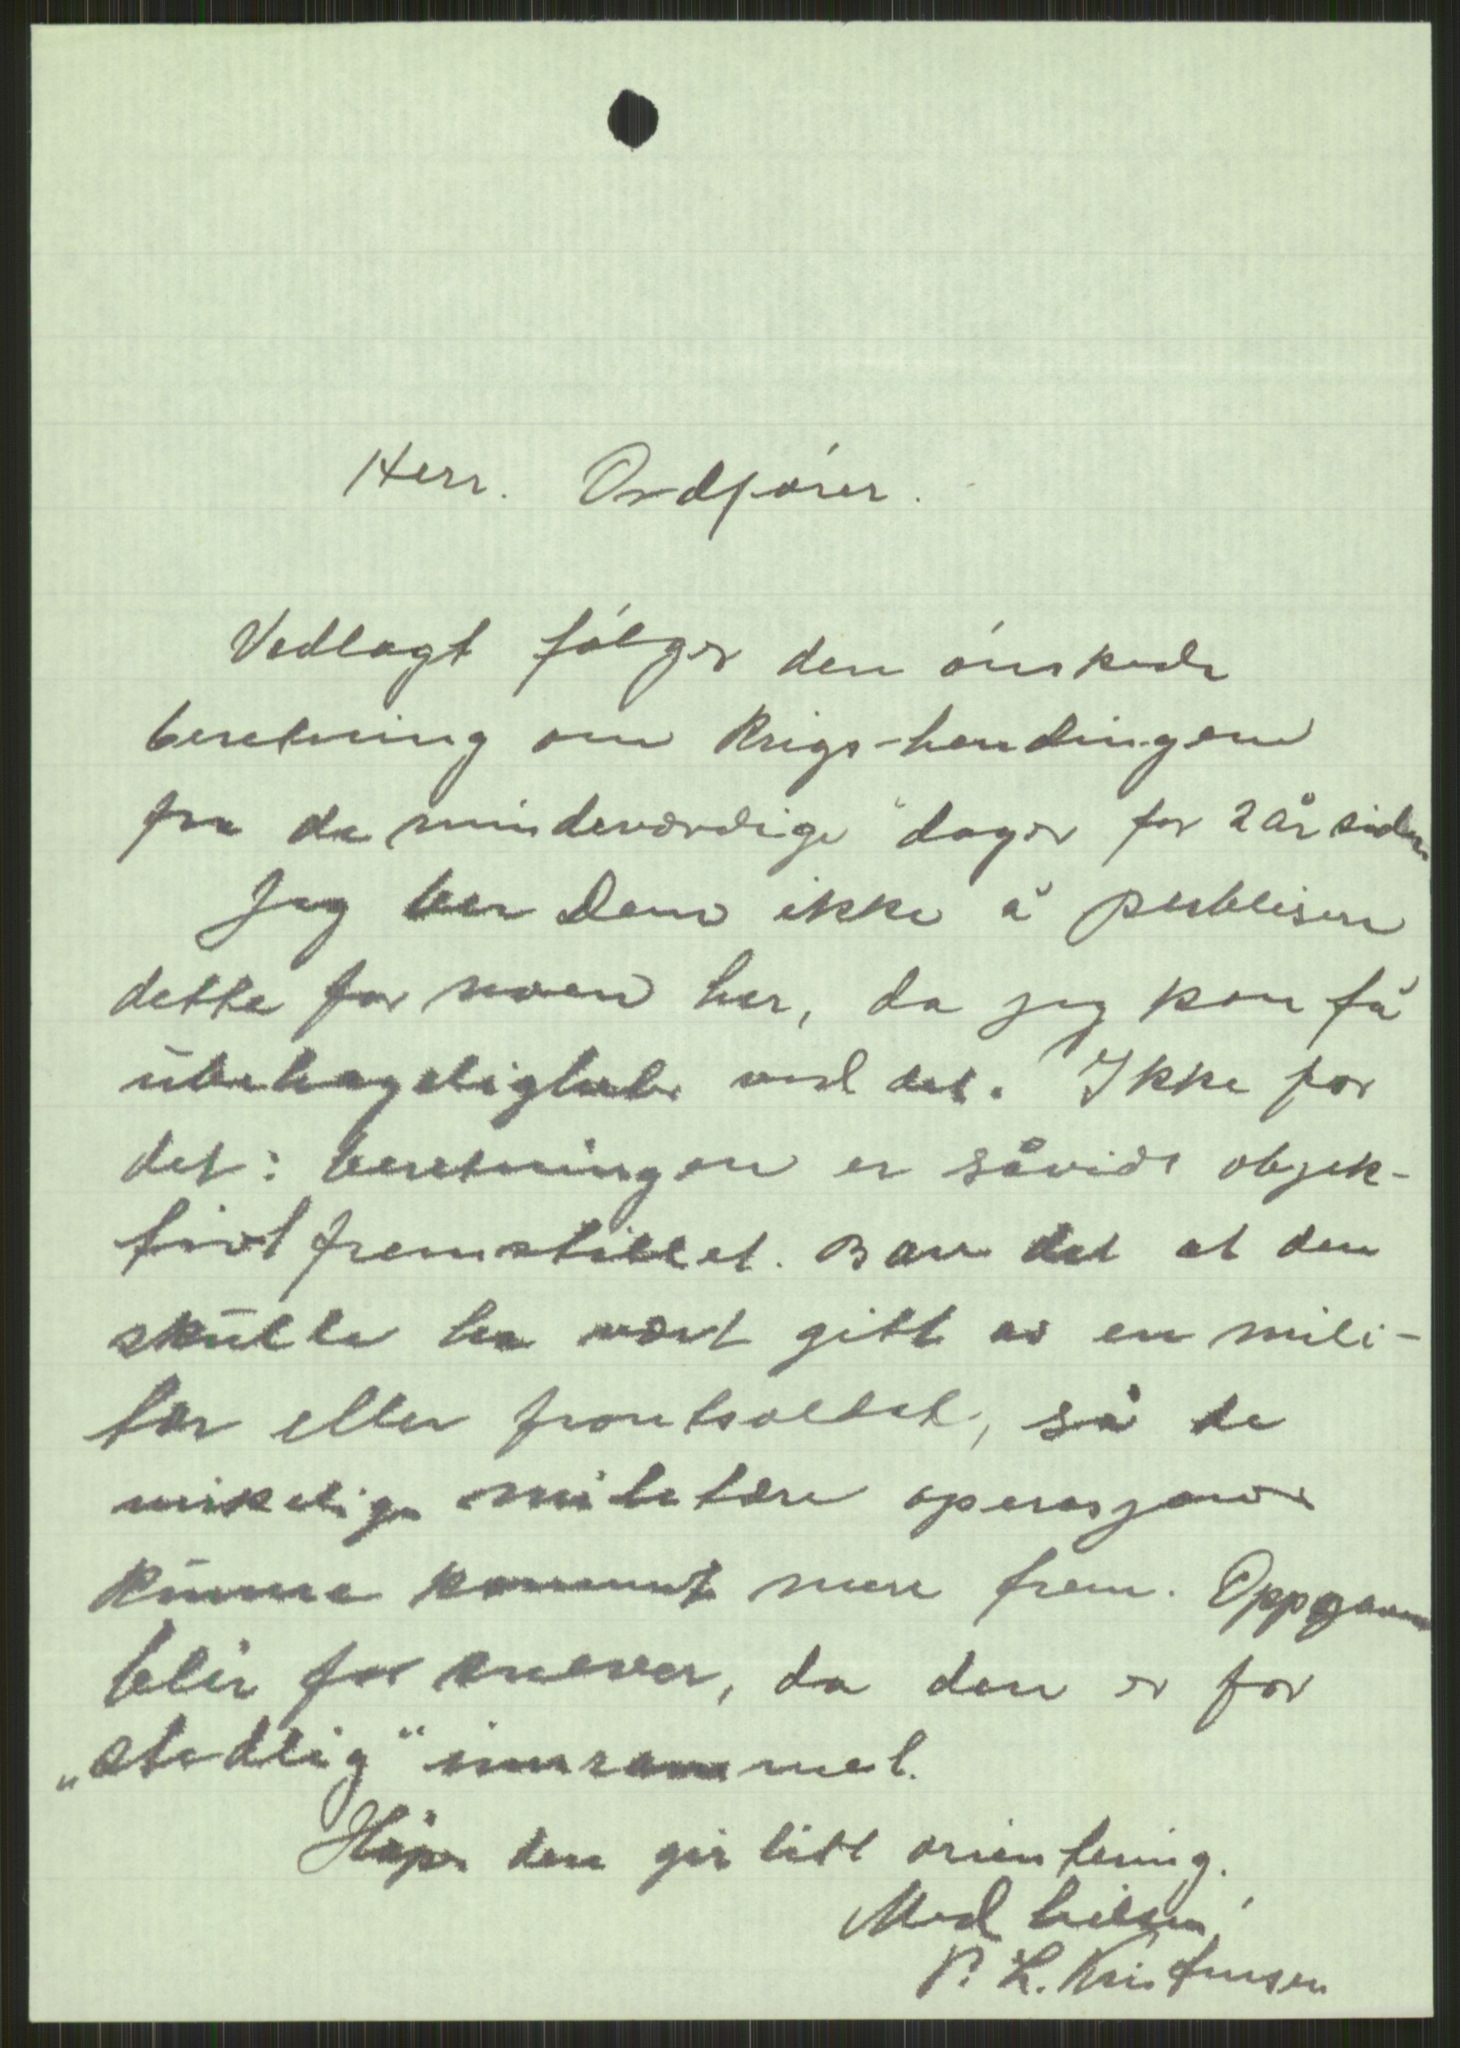 Herr. Ordfórer.
Vedlagt fólger den ónskede
beretning om krigs-hendingene
fra de mindeværdige dager for 2 år siden.
Jeg ber Dem ikke å publisere
dette for noen her, da jeg kan få
ubehageligheter ved det. Ikke for
det: beretningen er såvidt objek-
tivt fremstillet. Bare det at den
skulle ha vært gitt av en mili-
tær eller frontsoldat, så de
virkelige militære operasjoner
kunne kommet mere frem. Oppgaven
blir for snever, da den er for
„stedlig" innrammet.
Håper den gir litt orientering.
Med hilsen!
P. L. Kristensen